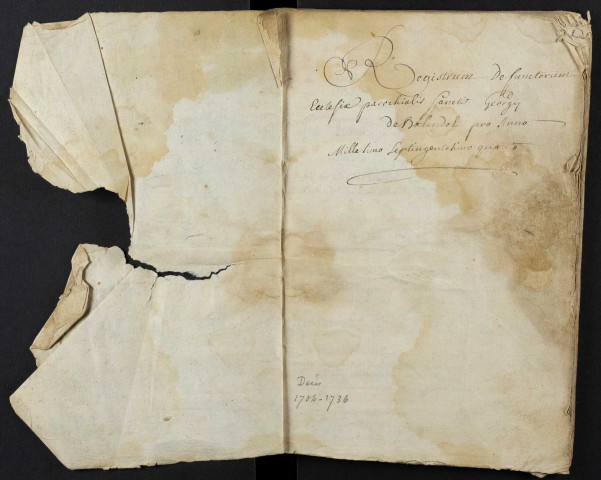 Registrum Defunctorum
Ecclesiæ parochialis Sancti Georgy
de pro Anno
Millesimo Septingentesimo quarto
Décès
1704-1736